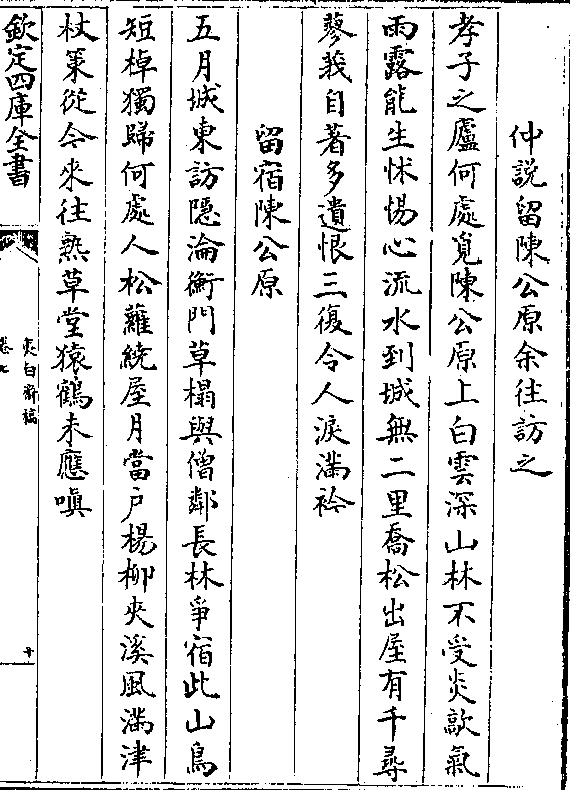 仲説留陳公原余往訪之
孝子之廬何處覓陳公原上白雲深山林不受炎歊氣
雨露能生怵惕心流水到城無二里喬松出屋有千尋
蓼莪自著多遺恨三復令人淚滿衿
留宿陳公原
五月城東訪隱淪衡門草榻與僧鄰長林爭宿此山鳥
短棹獨歸何處人松蘿繞屋月當戶楊柳夾溪風滿津
杖策從今來往熟草堂猿鶴未應嗔
欽定四庫全書
夷白齋稿
卷九
十